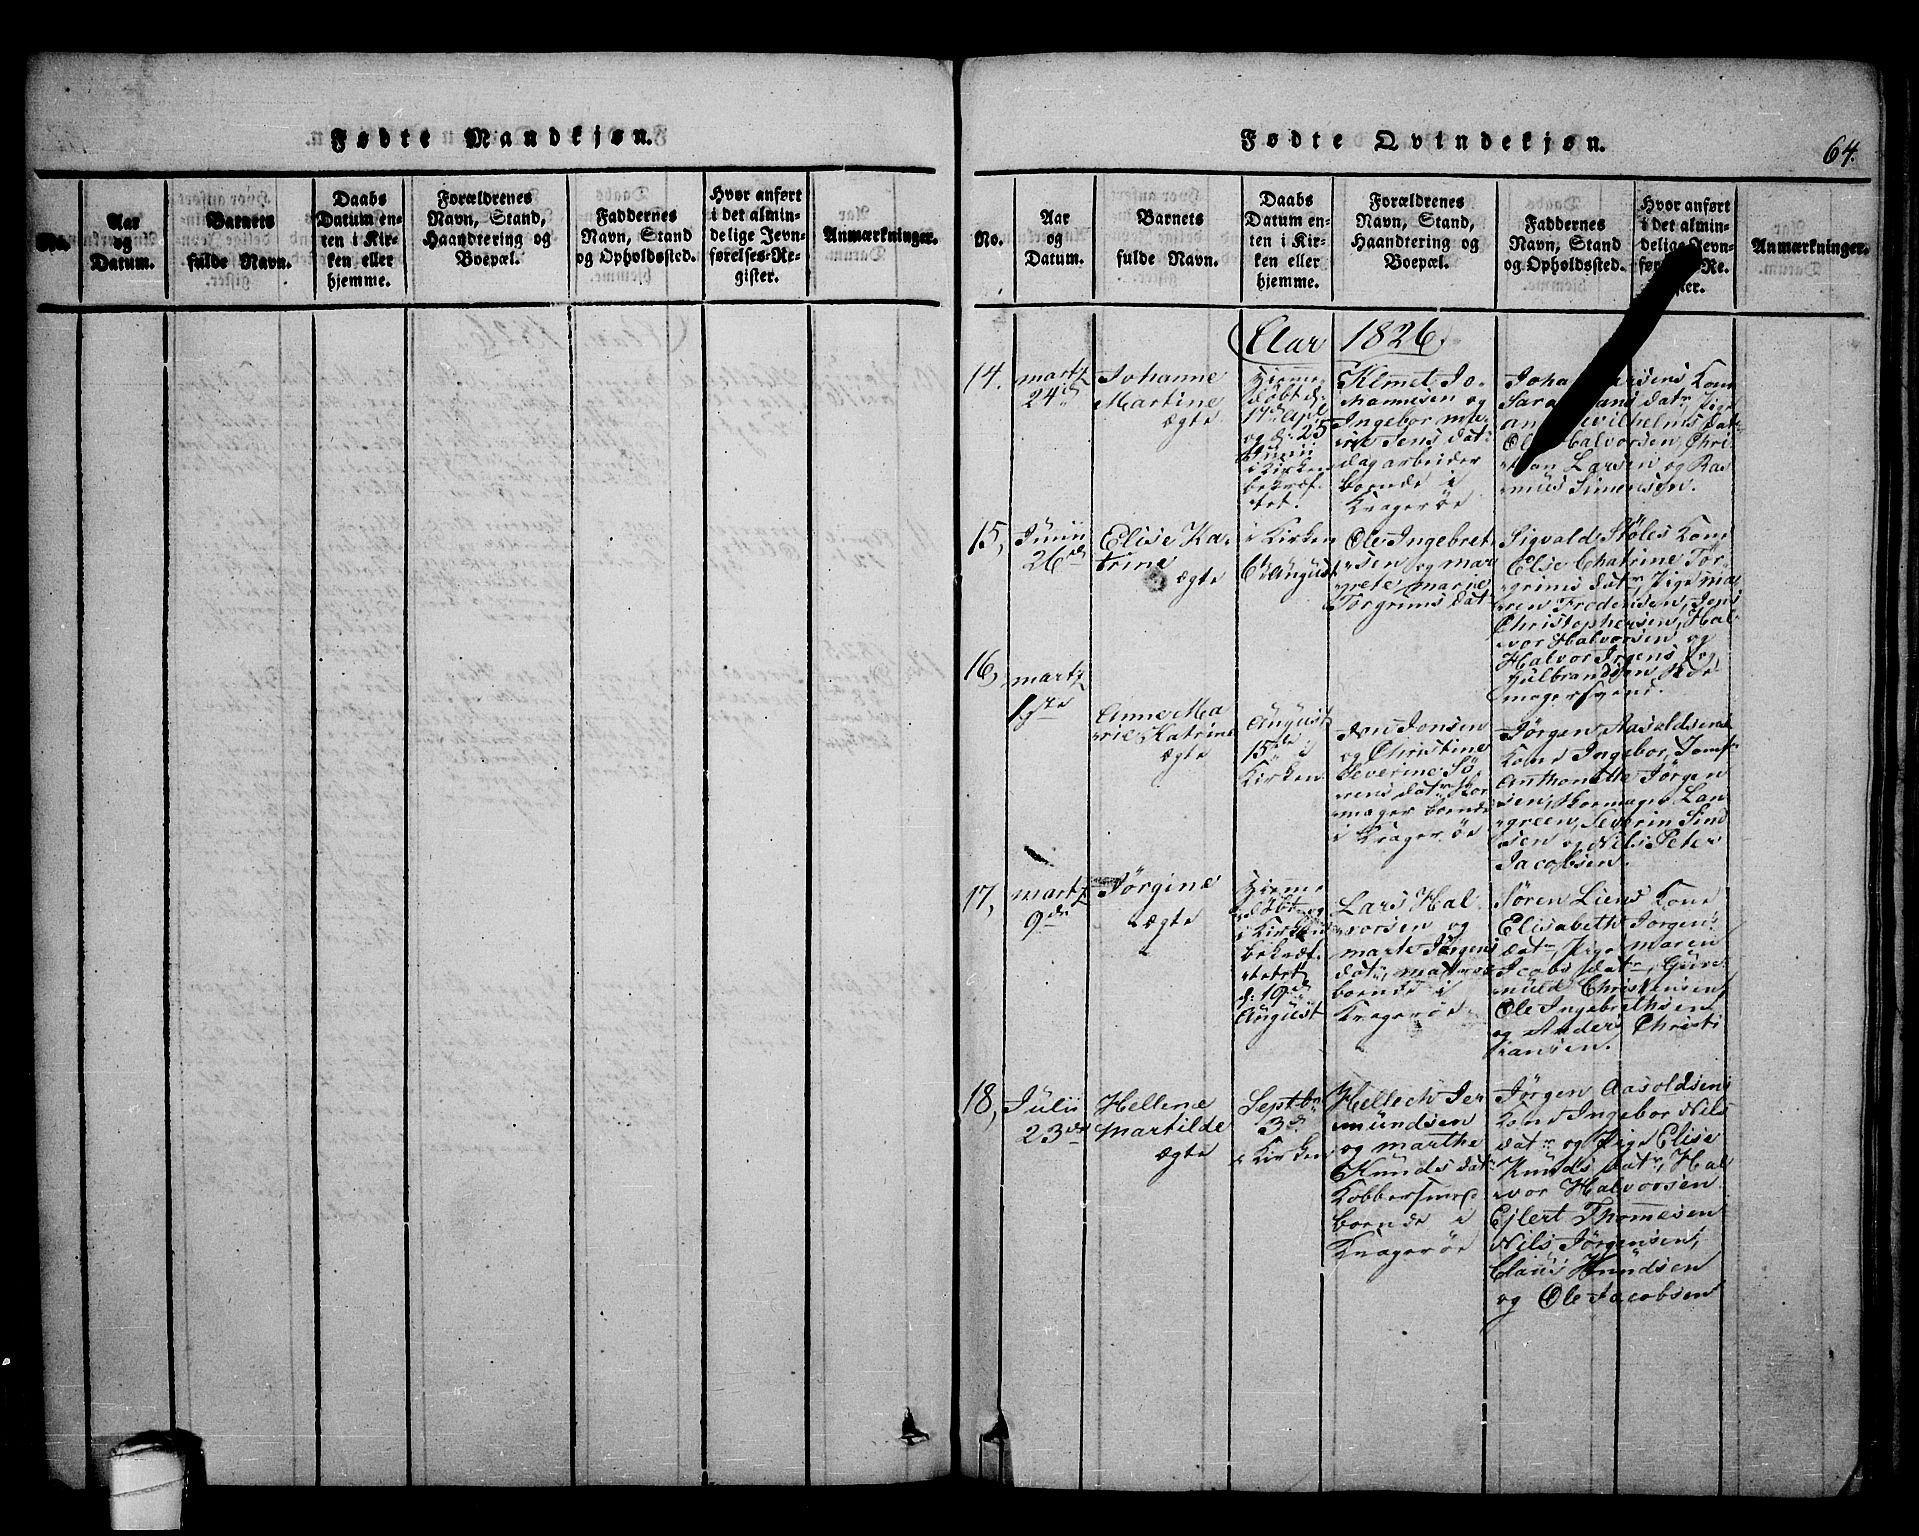 Fødte Mandkjøn.
No.
Aar
og
Datum.
Barnets
fulde Navn.
Daabs
Datum en-
ten i Kir-
ken eller
hjemme.
Forældrenes
Navn, Stand,
Haandtering og
Boepæl.
Faddernes
Navn, Stand
og Opholdssted.
Hvor anført
i det almin-
delige Jevn-
førelses-Re-
gister.
Anmærkninger.
Fødte Qvindekjøn.
64.
No.
Aar
og
Datum.
Barnets
fulde Navn.
Daabs
Datum en-
ten i Kir-
ken eller
hjemme.
Forældrenes
Navn, Stand,
Haandtering og
Boepæl.
Faddernes
Navn, Stand
og Opholdssted.
Hvor anført
i det almin-
delige Jevn-
Re-
Anmærkninger.
Aar 1826
14.
martz
24d
Johanne
Martine
ægte
Hjemme
døbt d:
17d Apl
og d: 25
Junii
i Kirken
bekræf-
tet.
Klmet Jo-
hannesen og
Ingebor ma-
rie Jens dat:
dagarbeider
boende i
Kragerøe
Kone
Sara
Ole Halvorsen, Chri-
Larsen og Ras
mus Simensen.
15,
Junii
26de
Elise Ka-
trine
ægte
i Kirken
6d August
Ole Ingebret
sen og mar
grete marie
Torgrims dat
Sigvald Støles Kone
Elise Chatrine Tor-
grims datr, Pige ma-
ren Fredensen, Jens
Christophersen, Hal
vor Halvorsen og
Halvor Jrgens og
Hulbrandsen
magersvend.
16,
martz
1ste
Anne Ma
rie Katrine
ægte
August
15de i
Kirken
Jon Jonsen
og Christine
Severine Sö
rens datr Skor
mager boende
i Kragerøe
Jørgen Aasoldsens
Kone Ingebor, Jomfr
Anthonette Jørgen
sen, Skormager Lan
green, Severin Simo
sen og Nils Peter
Jacobsen.
17,
martz
9de
Jørgine
ægte
Hjemme
døbt og
i Kirken
bekræf-
tet
d: 19d
August
Lars Hal
vorsen og
marte Jørgens
dat:, matros
boende i
Kragerøe
Søren Liens Kone
Elisabeth Jørgens
datr, Pige maren
Jacobs datr, Guri
muld Christensen,
Ole Ingebrethsen
og Anders Christi
hansen.
18,
Julii
23de
Hellene
Martilde
ægte
Septbr
3d
i Kirken
Hellech Jer
mundsen
og marthe
Knuds dat:
Kobbersmed
boende i
Kragerøe
Jørgen Aasoldsens
Kone Ingebor Nils
datr og Pige Elise
Knuds datr, Hal
vor Halvorsen
Ejlert Thomesen
Nils Jørgensen,
Claus Knudsen
og Ole Jacobsen